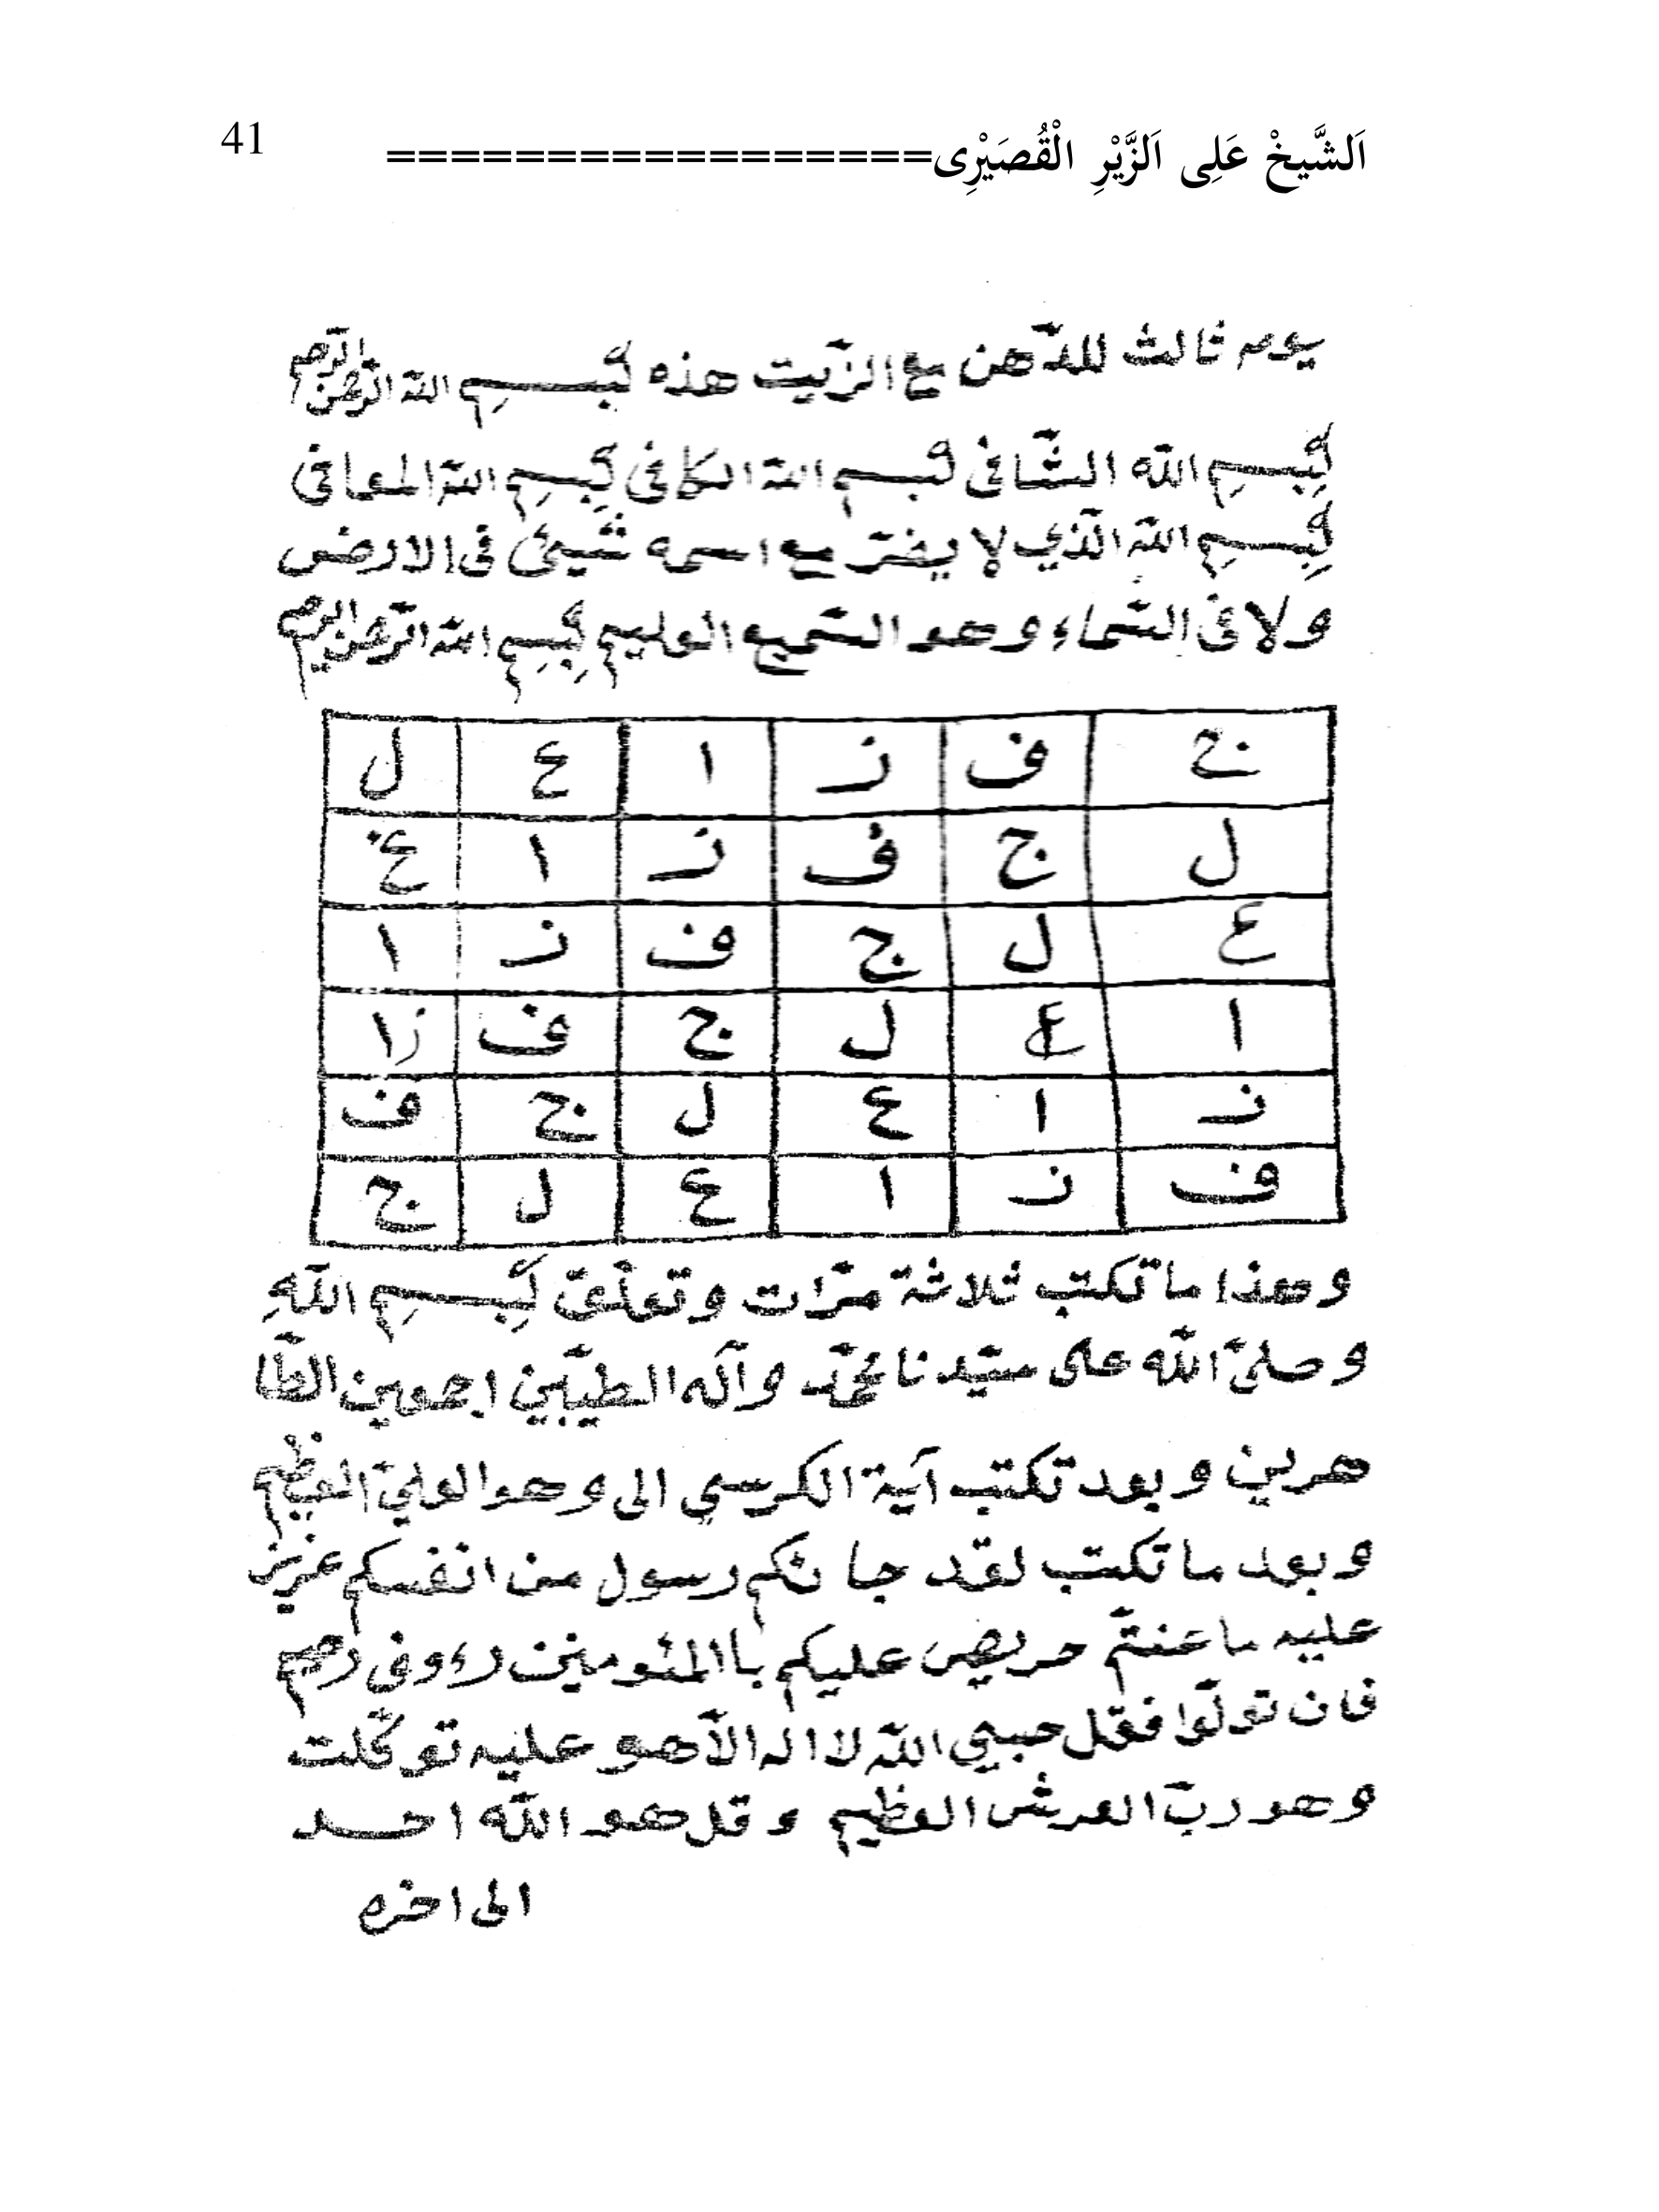 41 =================اَلشَّيخْ عَلِى اَلزَّيْرِ الْقُصَيْرِى
يوم ثالث للدّهن مع الزّيت هذه بسم اللّه الرّحمن الرّحيم
بِسمِ اللّه الشّافى بسم اللّه الكافى بِسمِ اللّه المعافى
بِسمِ اللّه الّذي لا يضرّ مع اسمه شيئ فى الارض
ولا فى السّماء وهو السّميع العليم بِسمِ اللّه الرّحمن الرّحيم
ج ف ز ا ع ل
ل ج ف ز ا ع
ع ل ج ف ز ا
ا ع ل ج ف ز ا
ز ا ع ل ج ف
ف ز ا ع ل ج
وهذا ما تكتب ثلاثة مرّات وتعلّق بِسمِ اللّهِ
وصلىّ اللّه على سيّدنا محمّد وآله الطيبّين اجمعين الطّا
هرين وبعد تكتب آية الكرسي الى وهو العليّ العظيم
وبعد ما تكتب لقد جائكم رسول من انفسكم عزيز
عليه ما عنتّم حريص عليكم باالمئومنين رءوف رحيم
فان تولّوا فقل حسبي اللّه لا اله الاّ هو عليه توكّلت
وهو ربّ العرش العظيم وقل هو اللّه احد
الى اخره